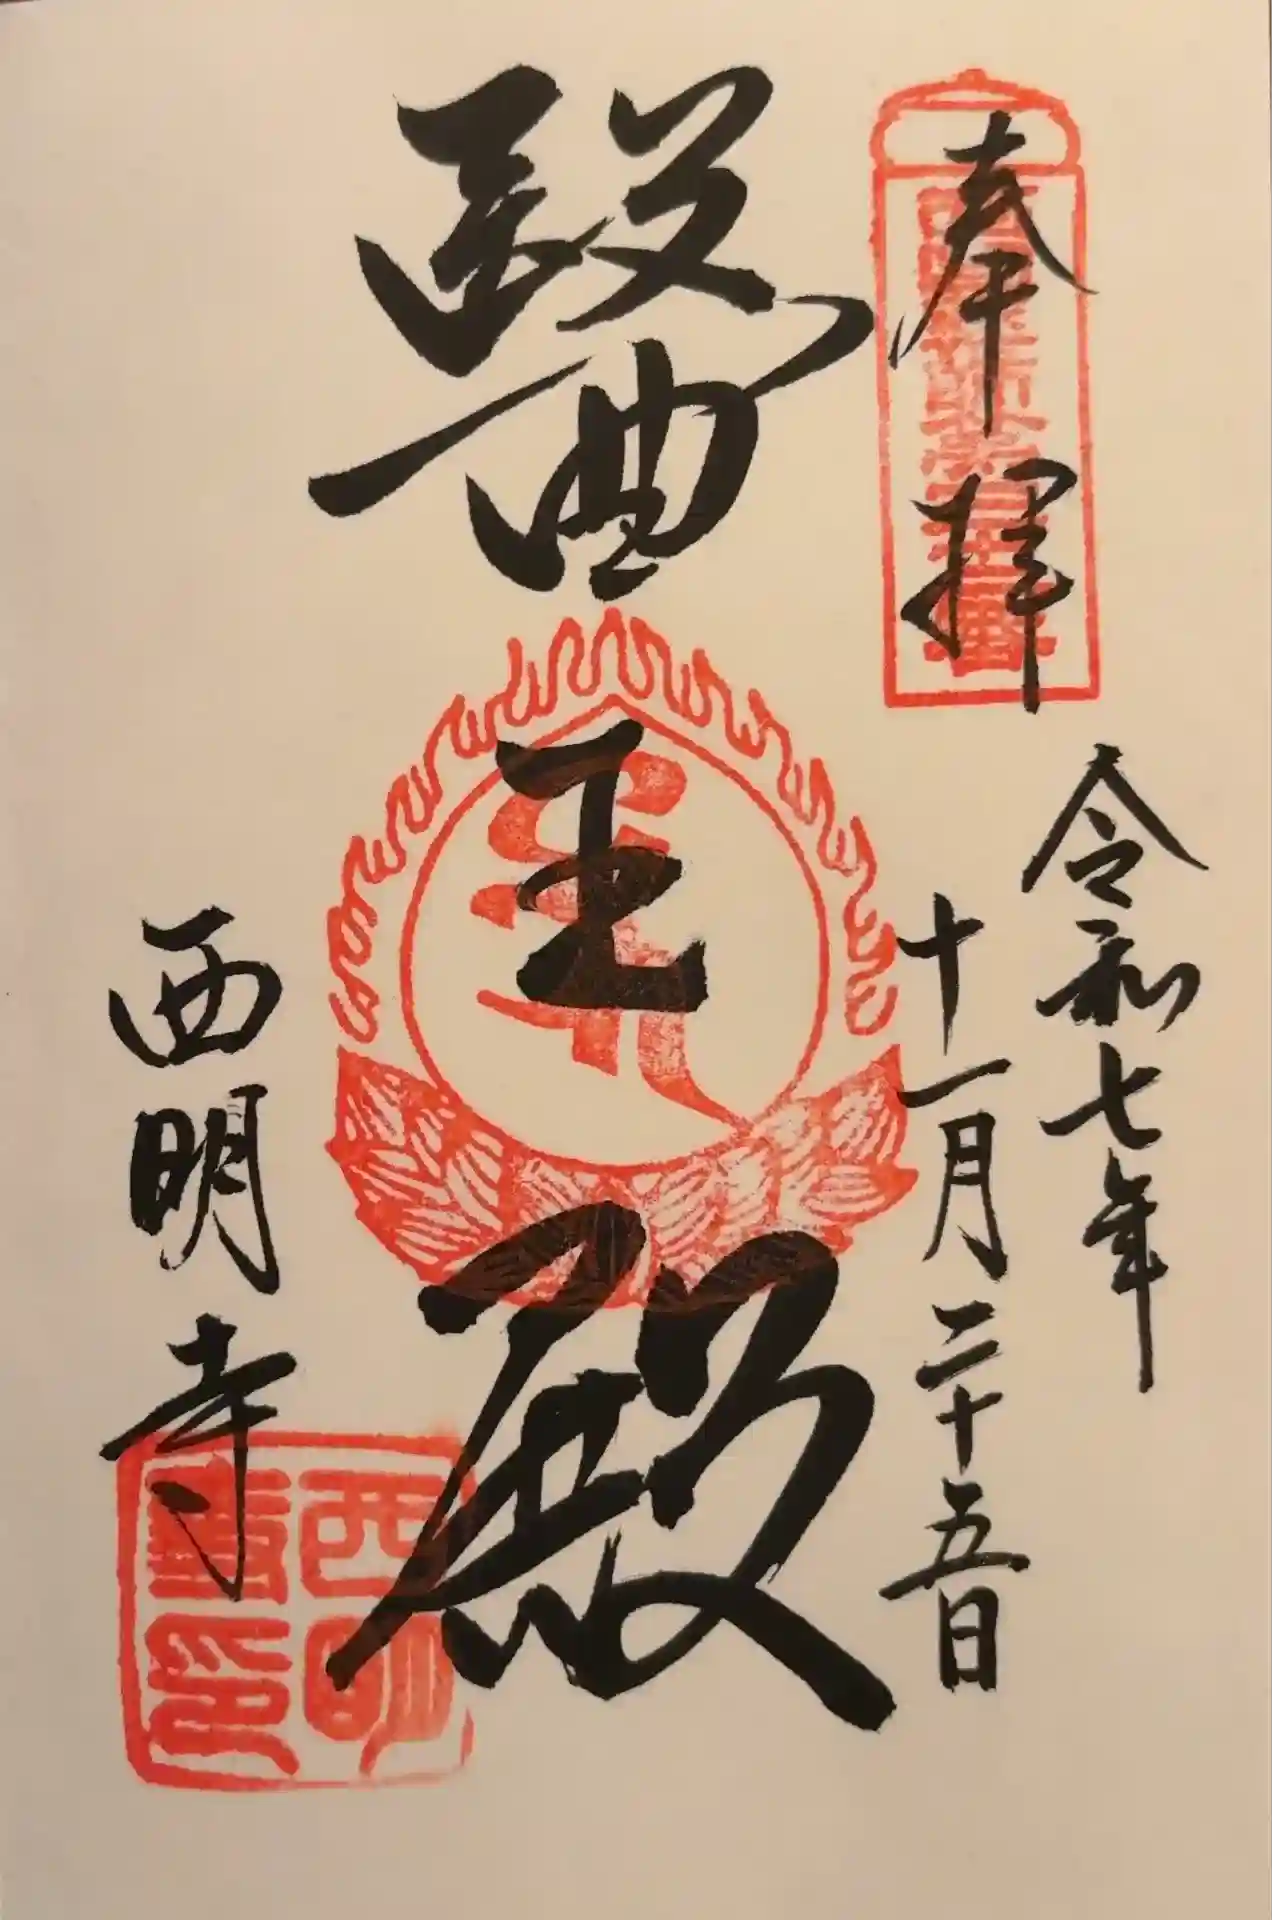 奉拝
令和七年
十一月二十五日
醫王殿
西明寺
西明
寺印